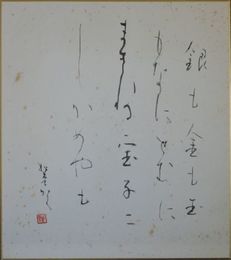 銀も金も玉
もなにせむに
まされる宝子に
しかめやも